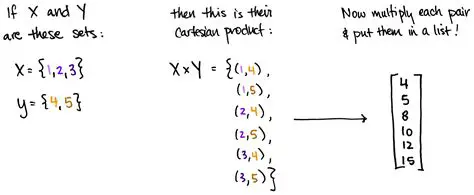 If X and Y
are these sets:
X = {1,2,3}
y = {4,5}
then this is their
Cartesian product:
X×Y = {(1,4),
(1,5),
(2,4),
(2,5),
(3,4),
(3,5)}
Now multiply each pair
& put them in a list!
4
5
8
10
12
15